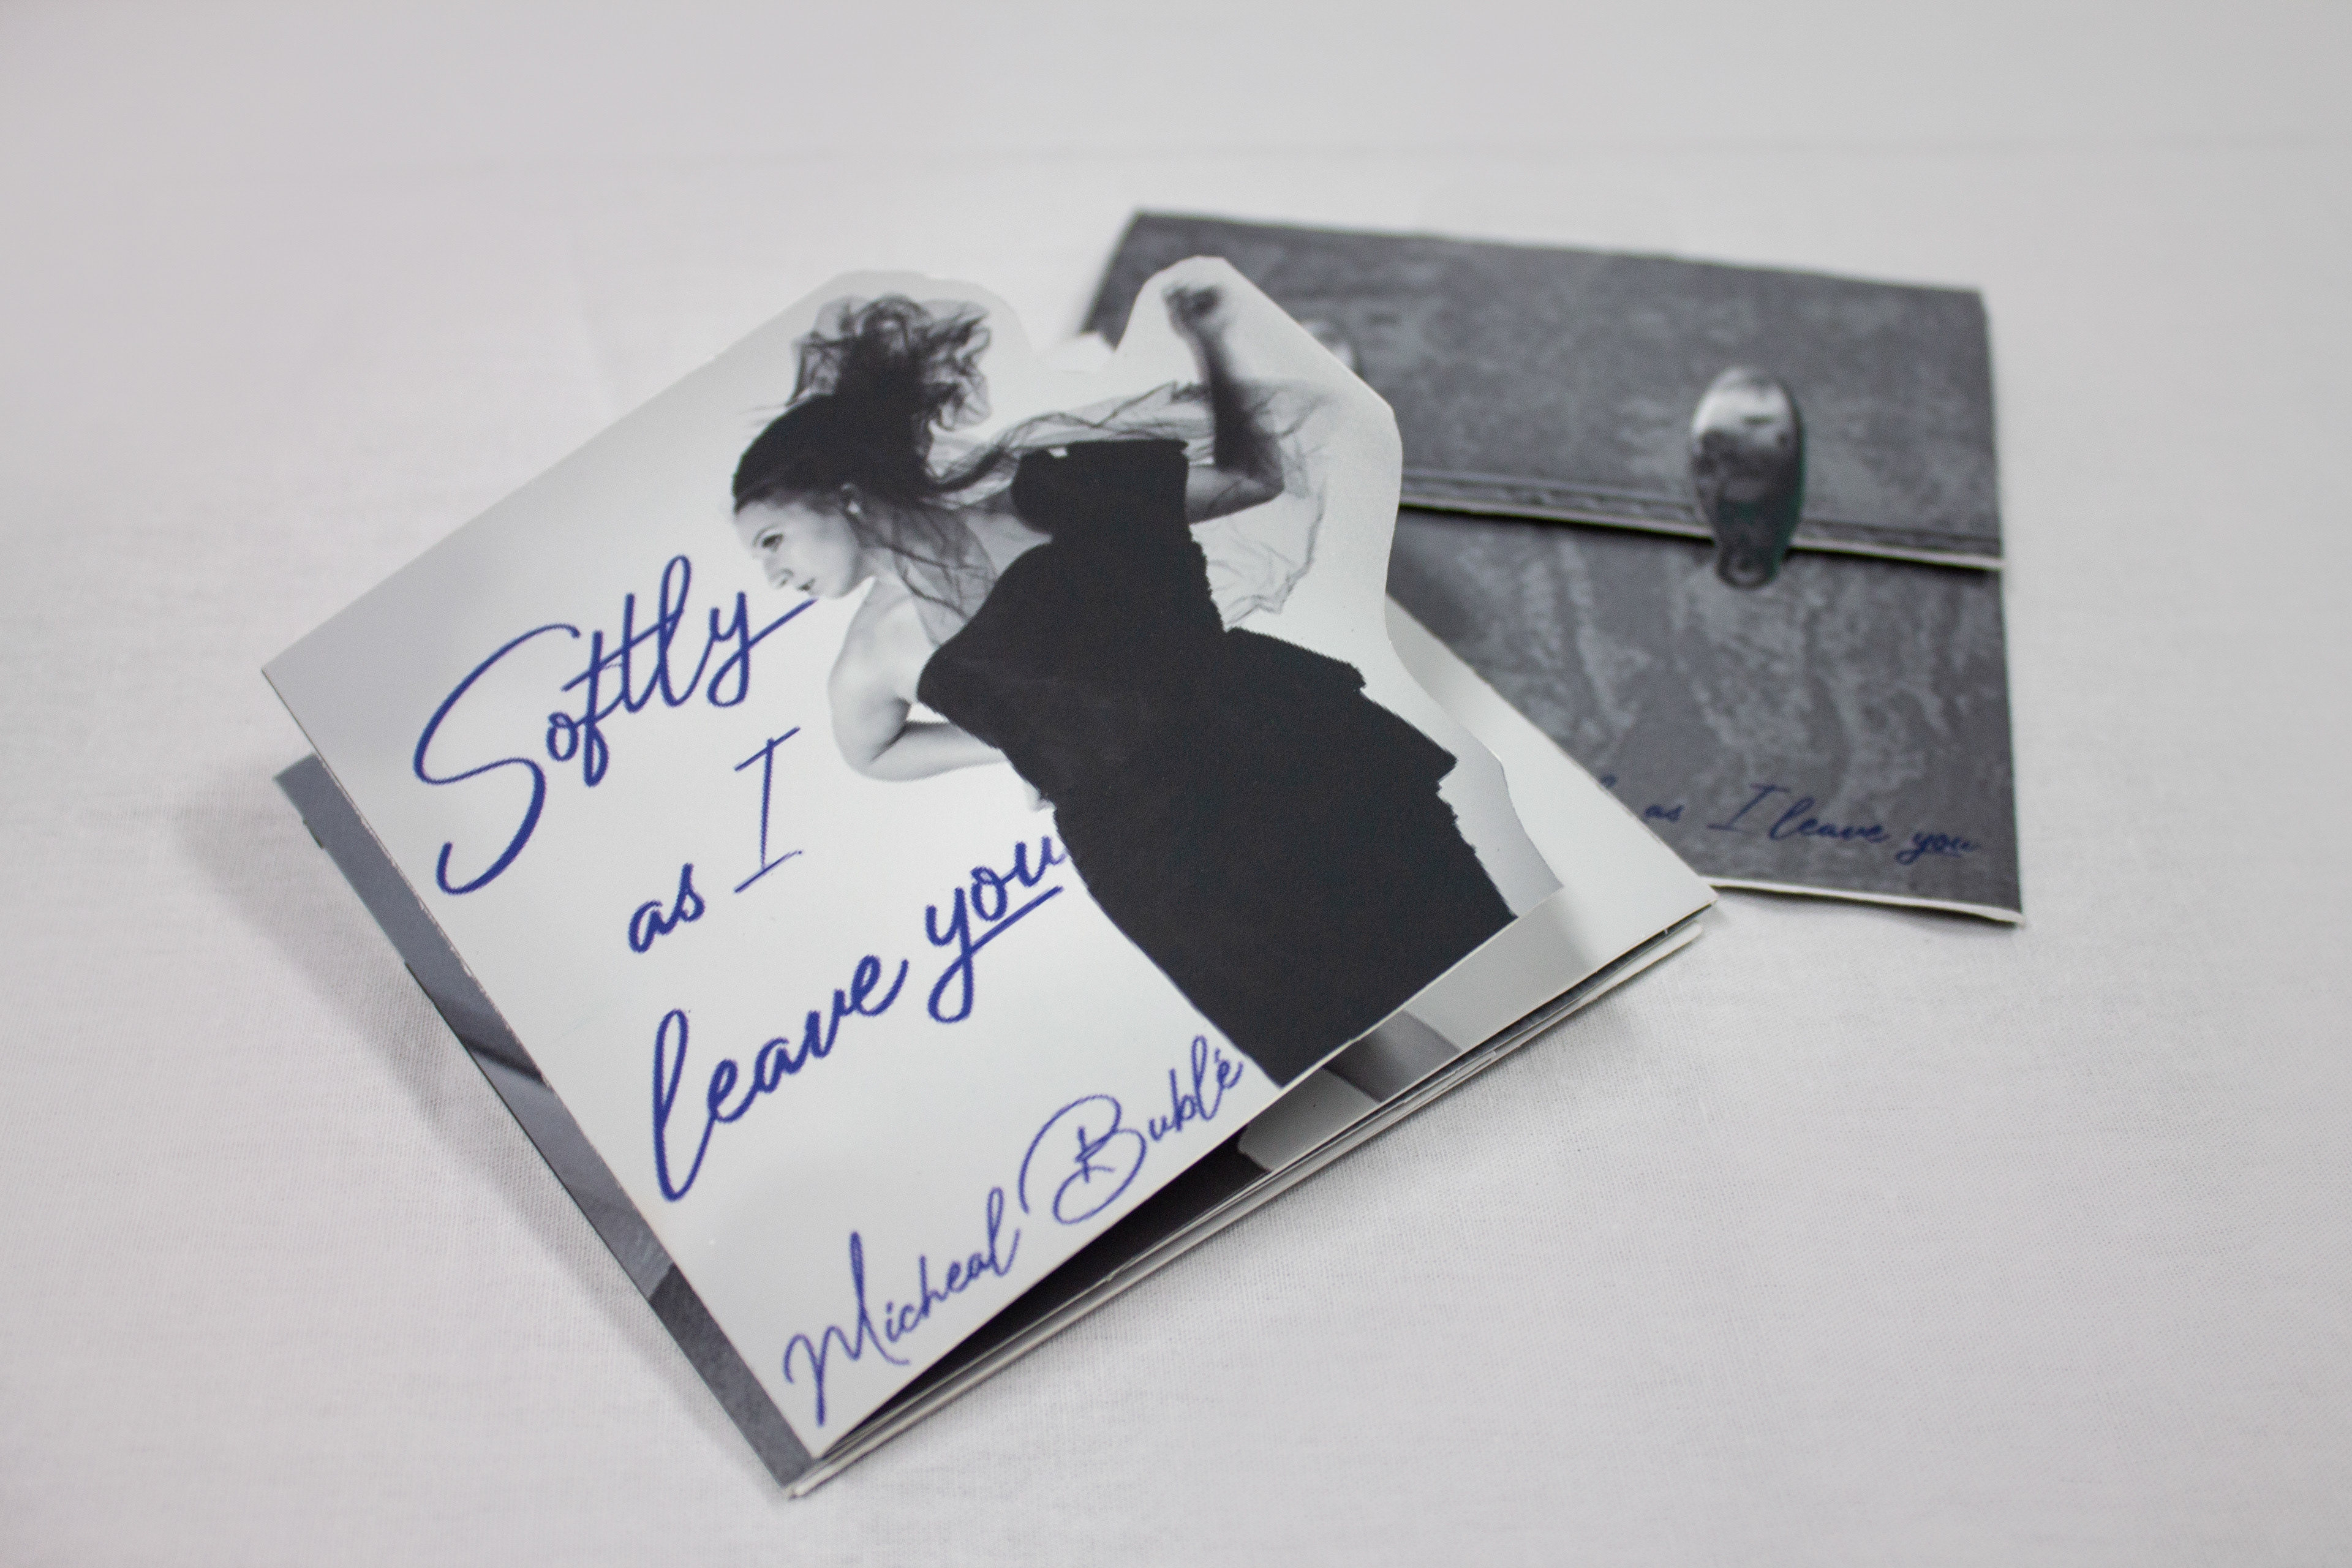 Softly
as I
leave you
Micheal Bublé
as I leave you